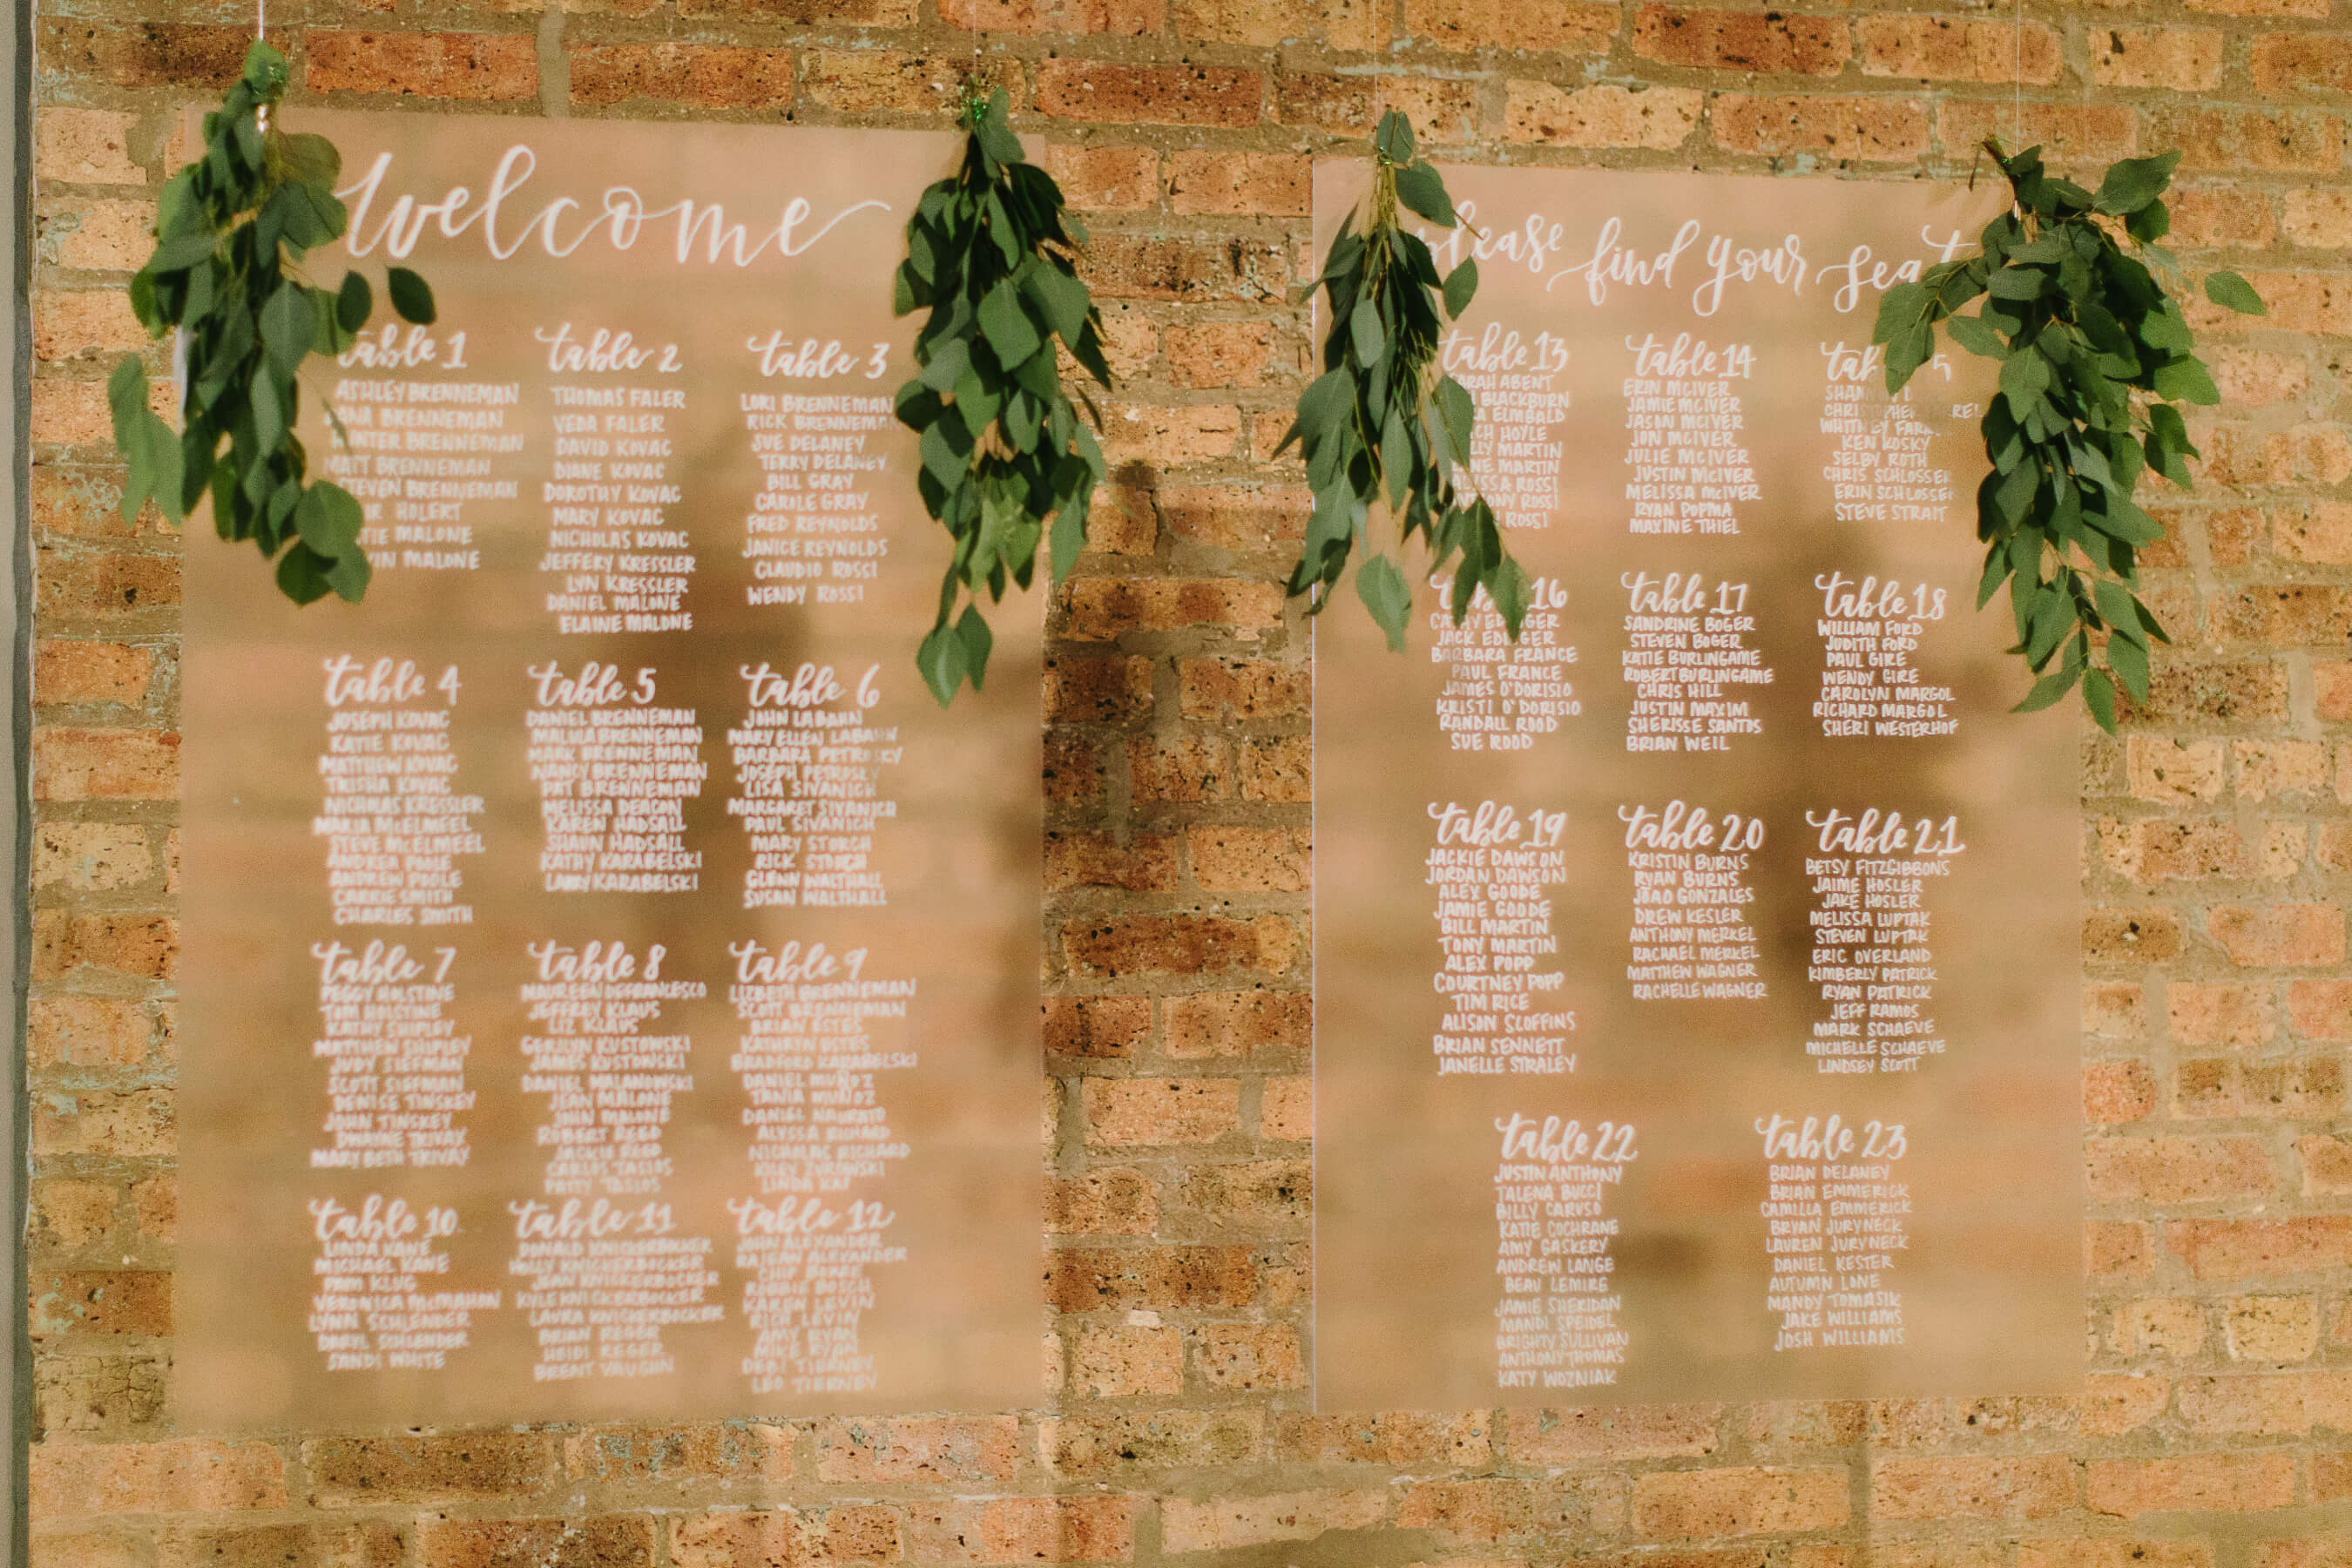 welcome
table 1
ASHLEY BRENNEMAN
BRENNEMAN
BRENNEMAN
MATT BRENNEMAN
STEVEN BRENNEMAN
HOLERT
MALONE
MALONE
table 2
THOMAS FALER
VEDA FALER
DAVID KOVAC
DIANE KOVAC
DOROTHY KOVAC
MARY KOVAC
NICHOLAS KOVAC
JEFFERY KRESSLER
LYN KRESSLER
DANIEL MALONE
ELAINE MALONE
table 3
LORI BRENNEMAN
RICK BRENNEMAN
SUE DELANEY
TERRY DELANEY
BILL GRAY
CAROLE GRAY
FRED REYNOLDS
JANICE REYNOLDS
CLAUDIO ROSSI
WENDY ROSSI
table 4
JOSEPH KOVAC
KATIE KOVAC
MATTHEW KOVAC
TRISHA KOVAC
NICHOLAS KRESSLER
MARIA McELMEEL
STEVE McELMEEL
ANDREA POOLE
ANDREW POOLE
CARRIE SMITH
CHARLES SMITH
table 5
DANIEL BRENNEMAN
MALULA BRENNEMAN
MARK BRENNEMAN
NANCY BRENNEMAN
PAT BRENNEMAN
MELISSA DEACON
KAREN HADSALL
SHAUN HADSALL
KATHY KARABELSKI
LARRY KARABELSKI
table 6
JOHN LABAHN
MARY ELLEN LABAHN
BARBARA PETROSKY
JOSEPH PETROSKY
LISA SIVANICH
MARGARET SIVANICH
PAUL SIVANICH
MARY STORCH
RICK STORCH
GLENN WALTHALL
SUSAN WALTHALL
table 7
PEGGY HOLSTINE
TOM HOLSTINE
KATHY SHIPLEY
MATTHEW SHIPLEY
JUDY SIEFMAN
SCOTT SIEFMAN
DENISE TINSKEY
JOHN TINSKEY
DWAYNE TRIVAY
MARY BETH TRIVAY
table 8
MAUREEN DEFRANCESCO
JEFFREY KLAUS
LIZ KLAUS
KUSTOWSKI
JAMES KUSTOWSKI
DANIEL MALANOWSKI
JEAN MALONE
JOHN MALONE
ROBERT REED
JACKIE REED
CARLOS TASIOS
PATTY TASIOS
table 9
LIZBETH BRENNEMAN
SCOTT BRENNEMAN
BRIAN ESTES
KATHRYN ESTES
BRADFORD KARABELSKI
DANIEL MUÑOZ
TANIA MUÑOZ
DANIEL
ALYSSA RICHARD
NICHOLAS RICHARD
LINDA
table 10
LINDA KANE
MICHAEL KANE
PAM KLUG
VERONICA McMAHON
LYNN SCHLENDER
DARYL SCHLENDER
SANDI WHITE
table 11
DONALD KNICKERBOCKER
HOLLY KNICKERBOCKER
JEAN KNICKERBOCKER
KYLE KNICKERBOCKER
LAURA KNICKERBOCKER
BRIAN REGER
HEIDI REGER
BRENT VAUGHN
table 12
JOHN ALEXANDER
ALEXANDER
BOSCH
KAREN LEVIN
RICK LEVIN
AMY RYAN
MIKE RYAN
DEBI TIERNEY
LEO TIERNEY
please find your seat
table 13
SARAH ABENT
BLACKBURN
ELMBALD
HOYLE
MARTIN
MARTIN
ALYSSA ROSSI
ROSSI
ROSSI
table 14
ERIN MCIVER
JAMIE MCIVER
JASON MCIVER
JON MCIVER
JULIE MCIVER
JUSTIN MCIVER
MELISSA MCIVER
RYAN POPMA
MAXINE THIEL
table 15
CHRISTOPHER
WHITNEY
KEN KOSKY
SELBY ROTH
CHRIS SCHLOSSER
ERIN SCHLOSSER
STEVE STRAIT
table 16
EDINGER
JACK EDINGER
BARBARA FRANCE
PAUL FRANCE
JAMES O'DORISIO
KRISTI O'DORISIO
RANDALL ROOD
SUE ROOD
table 17
SANDRINE BOGER
STEVEN BOGER
KATIE BURLINGAME
ROBERT BURLINGAME
CHRIS HILL
JUSTIN MAXIM
SHERISSE SANTOS
BRIAN WEIL
table 18
WILLIAM FORD
JUDITH FORD
PAUL GIRE
WENDY GIRE
CAROLYN MARGOL
RICHARD MARGOL
SHERI WESTERHOF
table 19
JACKIE DAWSON
JORDAN DAWSON
ALEX GOODE
JAMIE GOODE
BILL MARTIN
TONY MARTIN
ALEX POPP
COURTNEY POPP
TIM RICE
ALISON SCOFFINS
BRIAN SENNETT
JANELLE STRALEY
table 20
KRISTIN BURNS
RYAN BURNS
JOAO GONZALES
DREW KESLER
ANTHONY MERKEL
RACHAEL MERKEL
MATTHEW WAGNER
RACHELLE WAGNER
table 21
BETSY FITZGIBBONS
JAIME HOSLER
JAKE HOSLER
MELISSA LUPTAK
STEVEN LUPTAK
ERIC OVERLAND
KIMBERLY PATRICK
RYAN PATRICK
JEFF RAMOS
MARK SCHAEVE
MICHELLE SCHAEVE
LINDSEY SCOTT
table 22
JUSTIN ANTHONY
TALENA BUCCI
BILLY CARUSO
KATIE COCHRANE
AMY GASKERY
ANDREW LANGE
BEAU LEMIRE
JAMIE SHERIDAN
MANDI SPEIDEL
BRIGHTY SULLIVAN
ANTHONY THOMAS
KATY WOZNIAK
table 23
BRIAN DELANEY
BRIAN EMMERICK
CAMILLA EMMERICK
BRYAN JURYNECK
LAUREN JURYNECK
DANIEL KESTER
AUTUMN LONE
MANDY TOMASIK
JAKE WILLIAMS
JOSH WILLIAMS